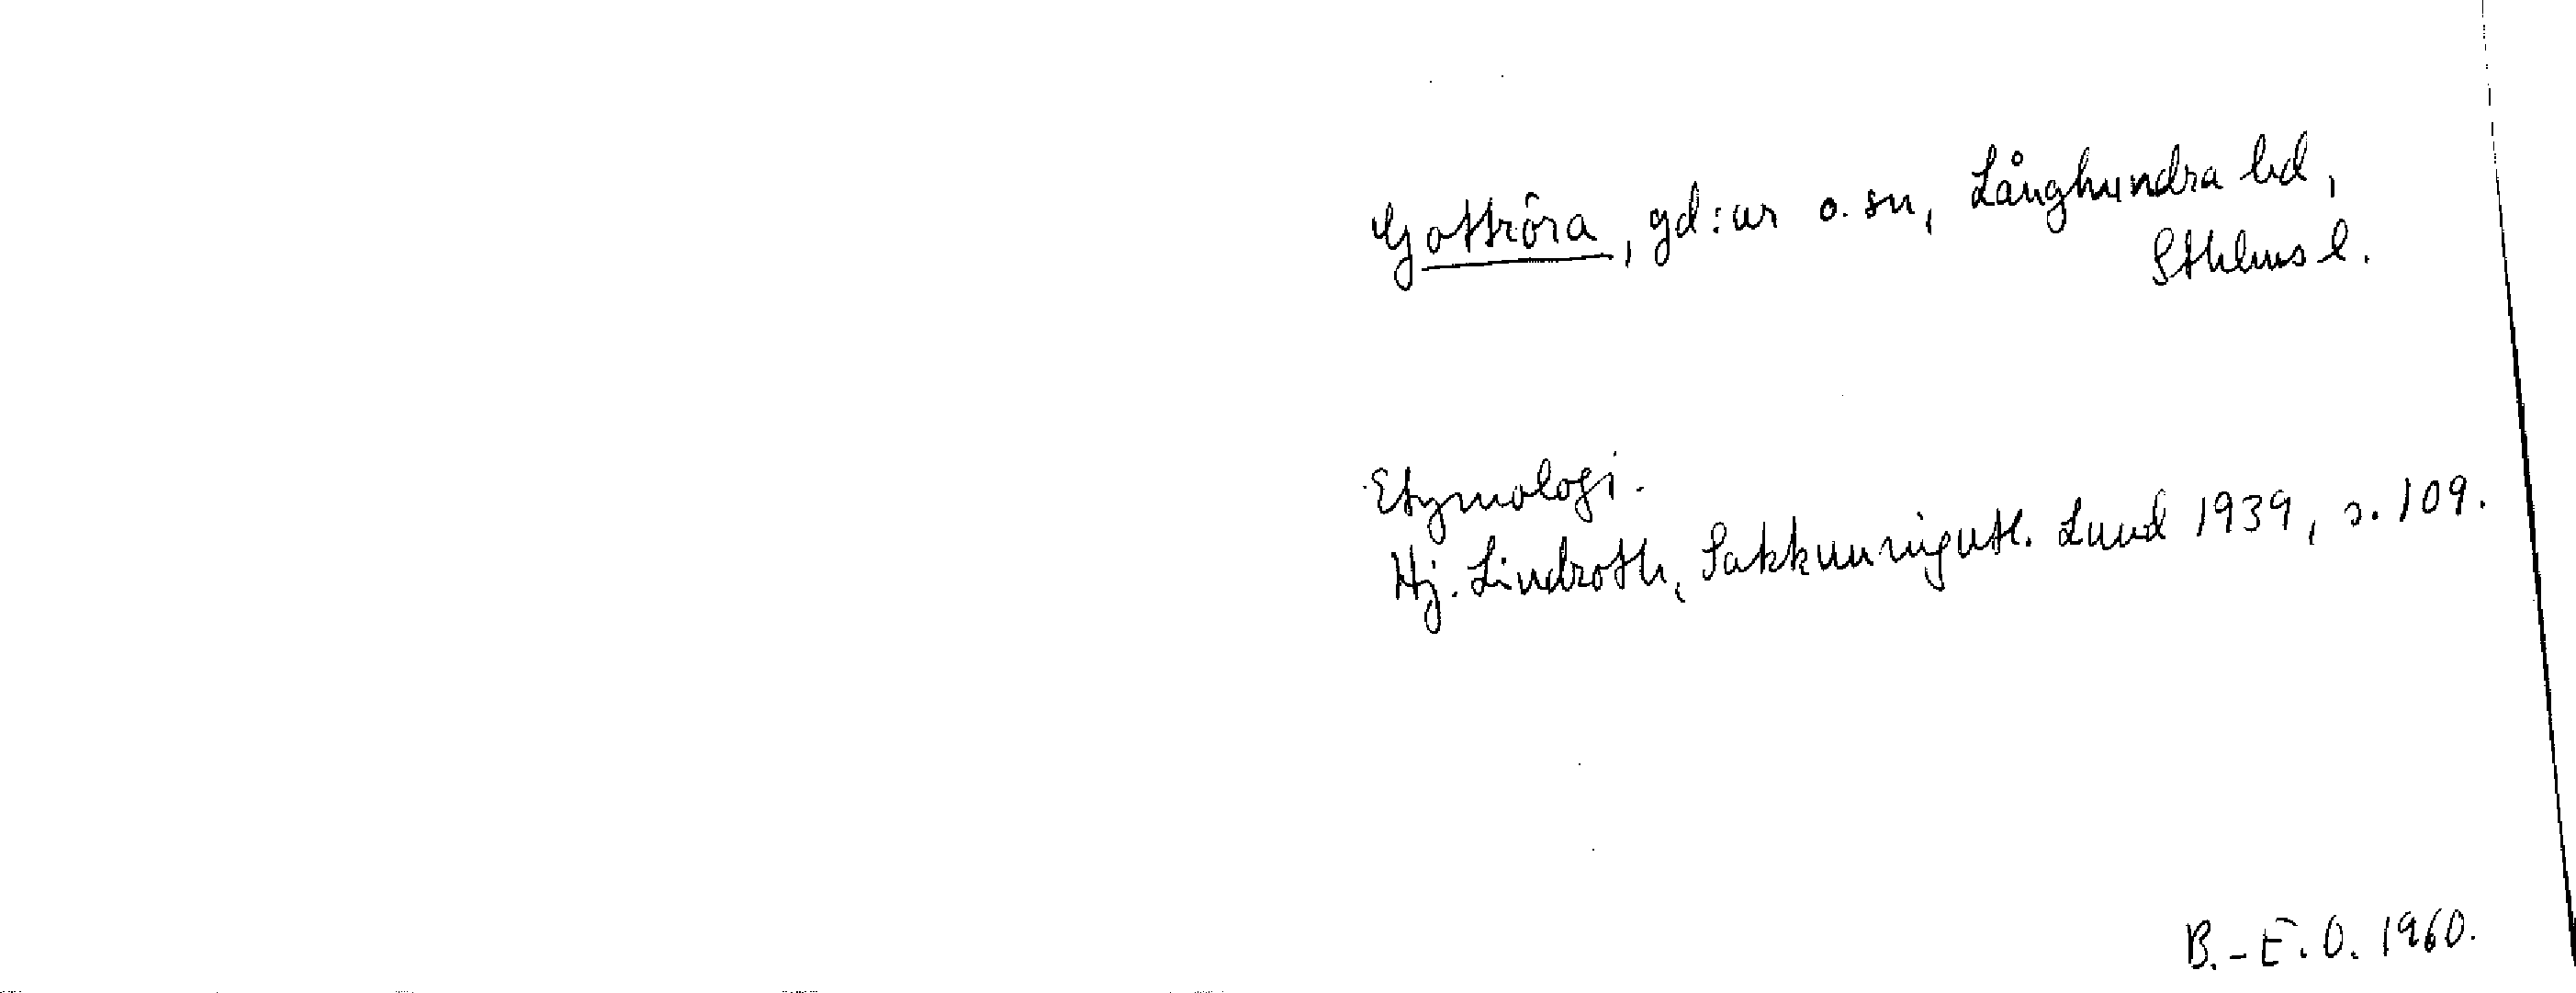 Gottröra, gd:ar o. sn, Långhundra hd,
Sthlms l.
Etymologi.
Hj. Lindroth, Sakkunnigutl. Lund 1939, s. 109.
B.-E. O. 1960.